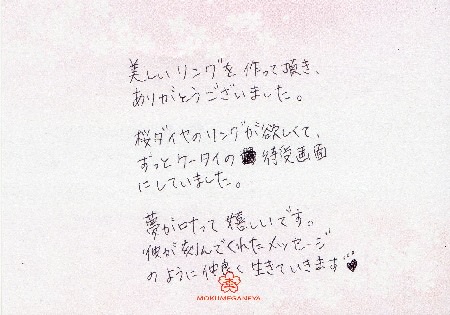 美しいリングを作って頂き、
ありがとうございました。
桜ダイヤのリングが欲しくて、
ずっとケータイの待受画面
にしていました。
夢が叶って嬉しいです。
彼が刻んでくれたメッセージ
のように仲良く生きていきます♥
MOKUMEGANEYA